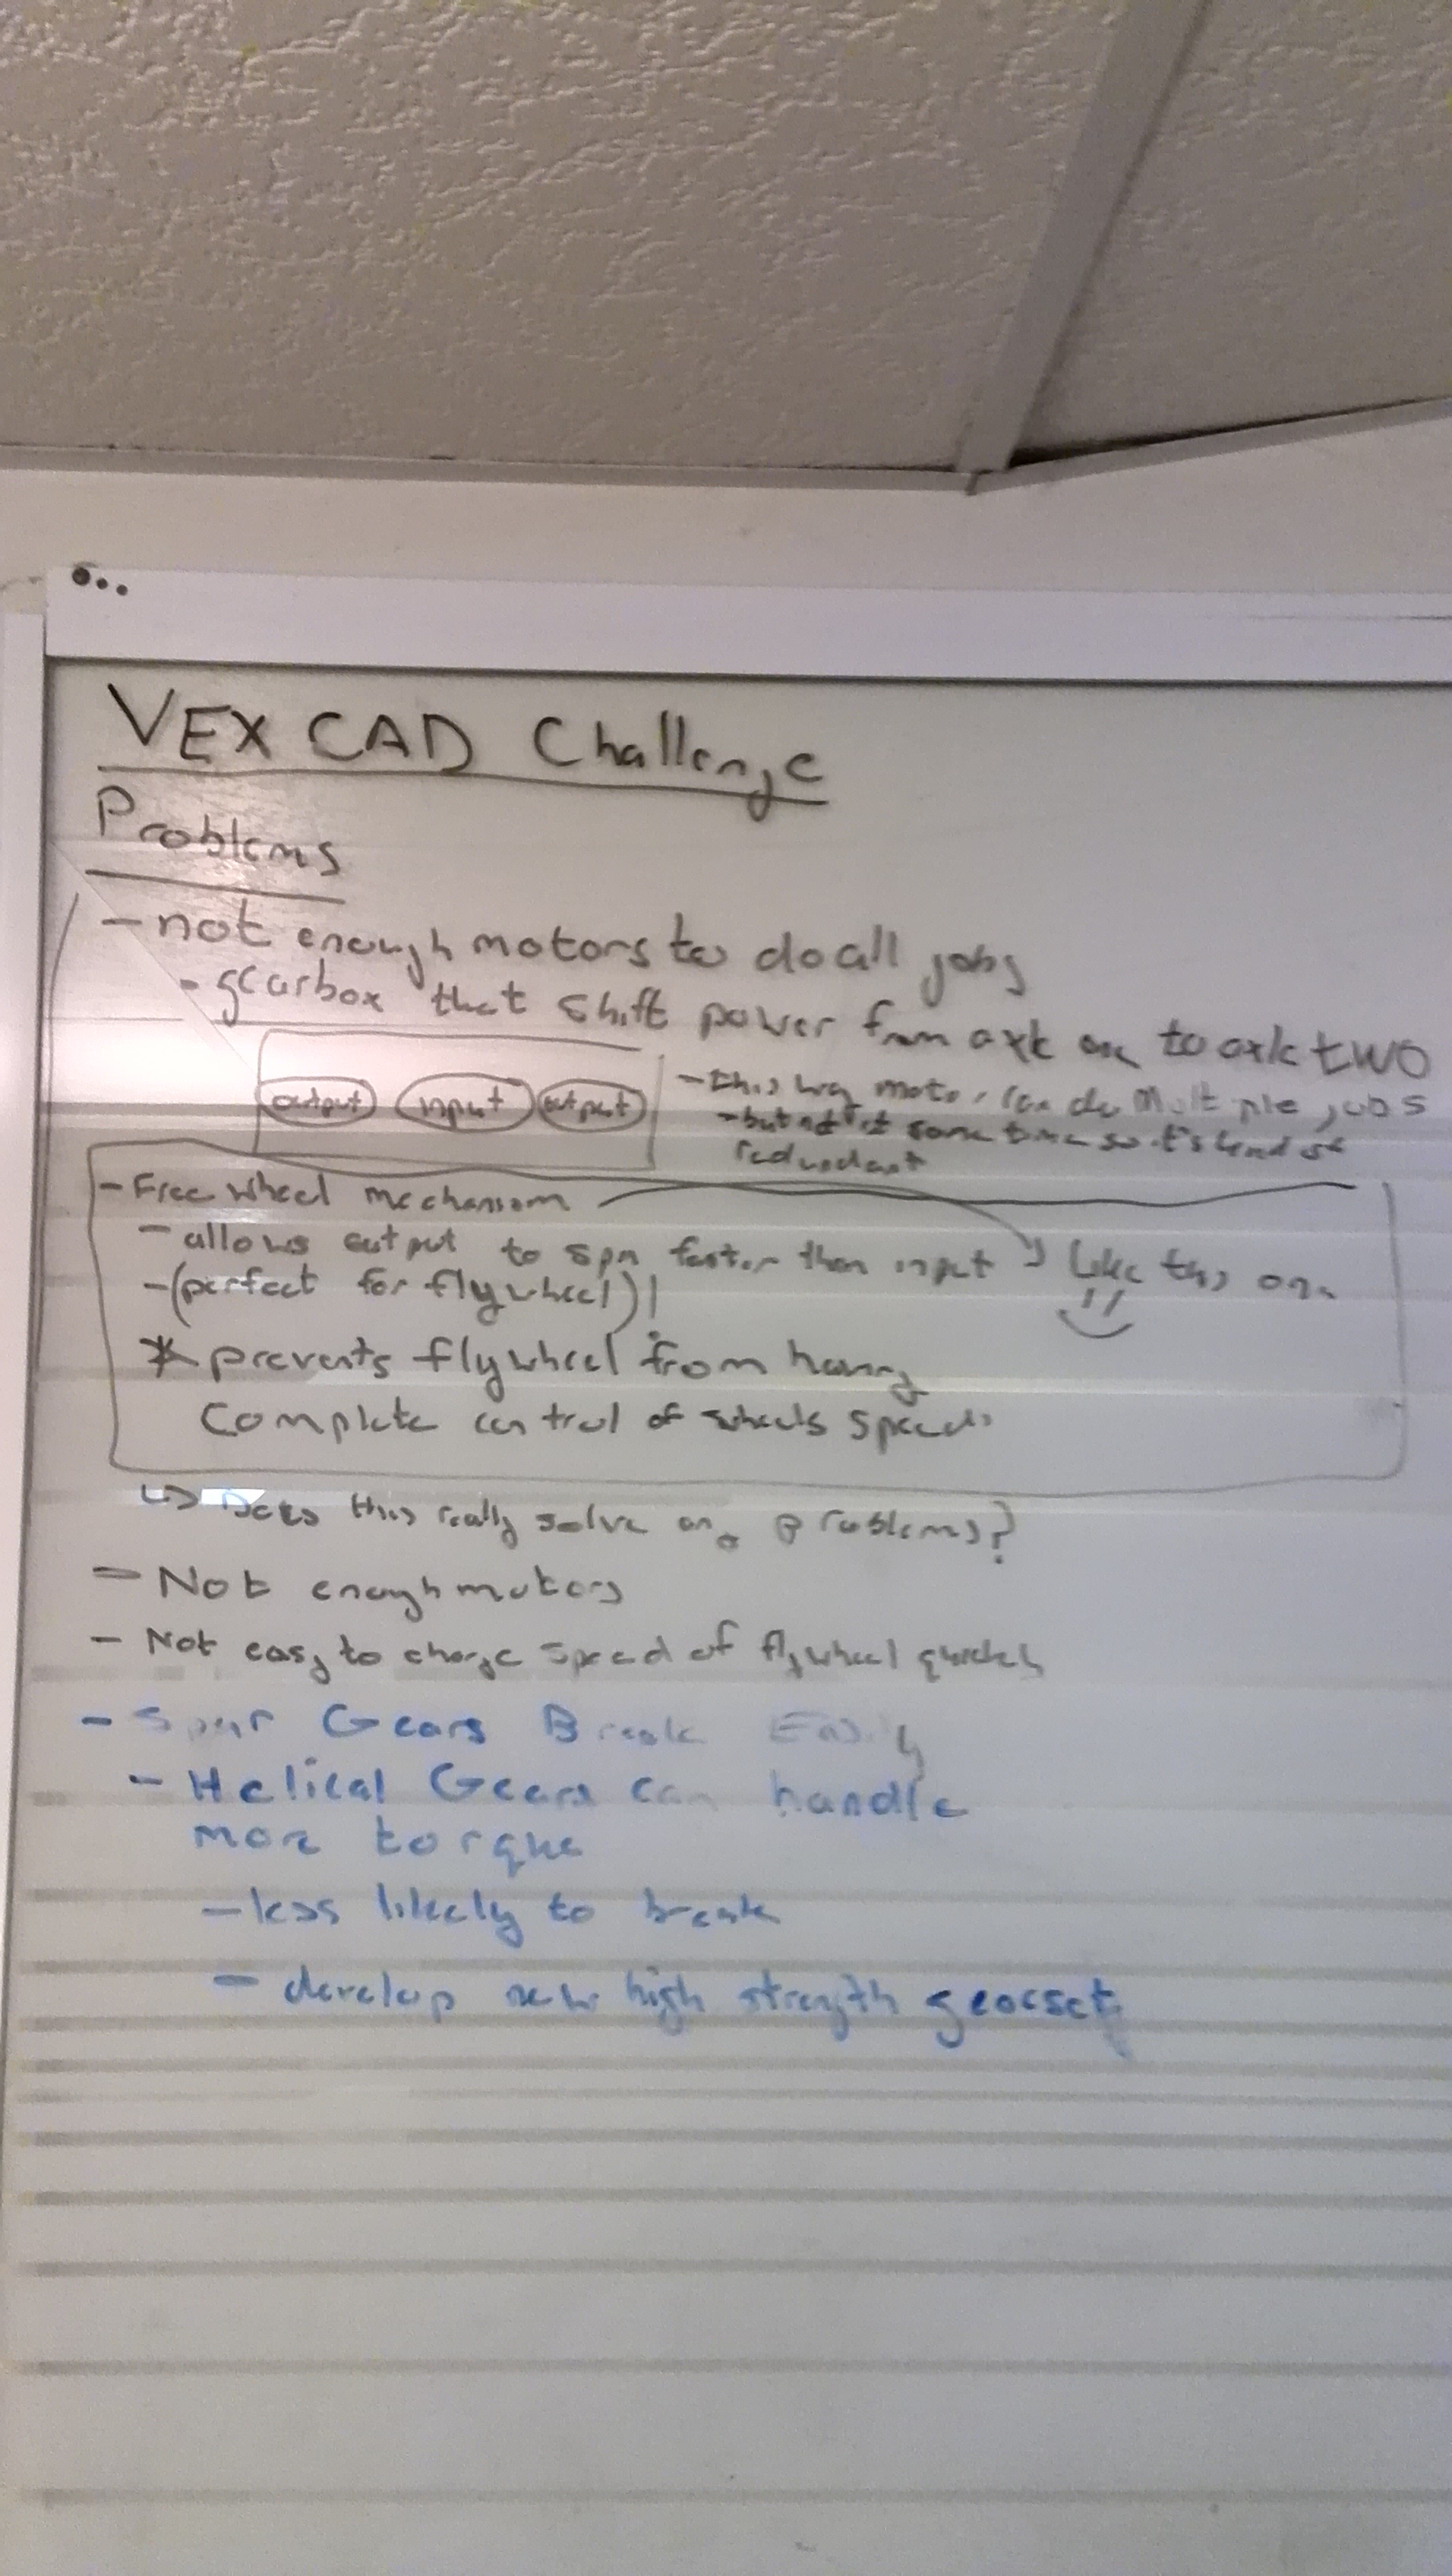 VEX CAD Challenge
Problems
- not enough motors to do all jobs
- gearbox that shift power from axle one to axle two
output input output
- this way motor can do multiple jobs
- but not at same time so it's kind of
redundant
- Free wheel mechanism
- allows output to spin faster than input
Like this one
- (perfect for flywheel)!
* prevents flywheel from having
Complete control of wheels speed
↳ Does this really solve any problems?
- Not enough motors
- Not easy to change speed of flywheel quickly
- Spur Gears Break Easily
- Helical Gears can handle
more torque
- less likely to break
- develop new high strength gearsets